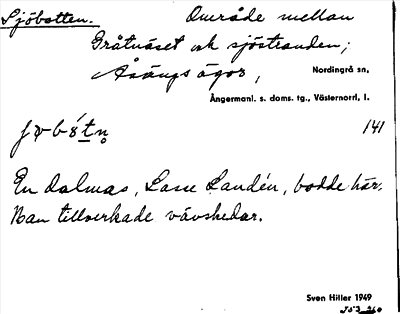 Sjöbotten. Område mellan
Gråtnäset och sjöstranden;
Åsängs ägor, Nordingrå sn,
Ångermanl. s. doms. tg., Västernorrl. l.
141
En dalmas, Lasse Landén, bodde här.
Han tillverkade vävskedar.
Sven Hiller 1949